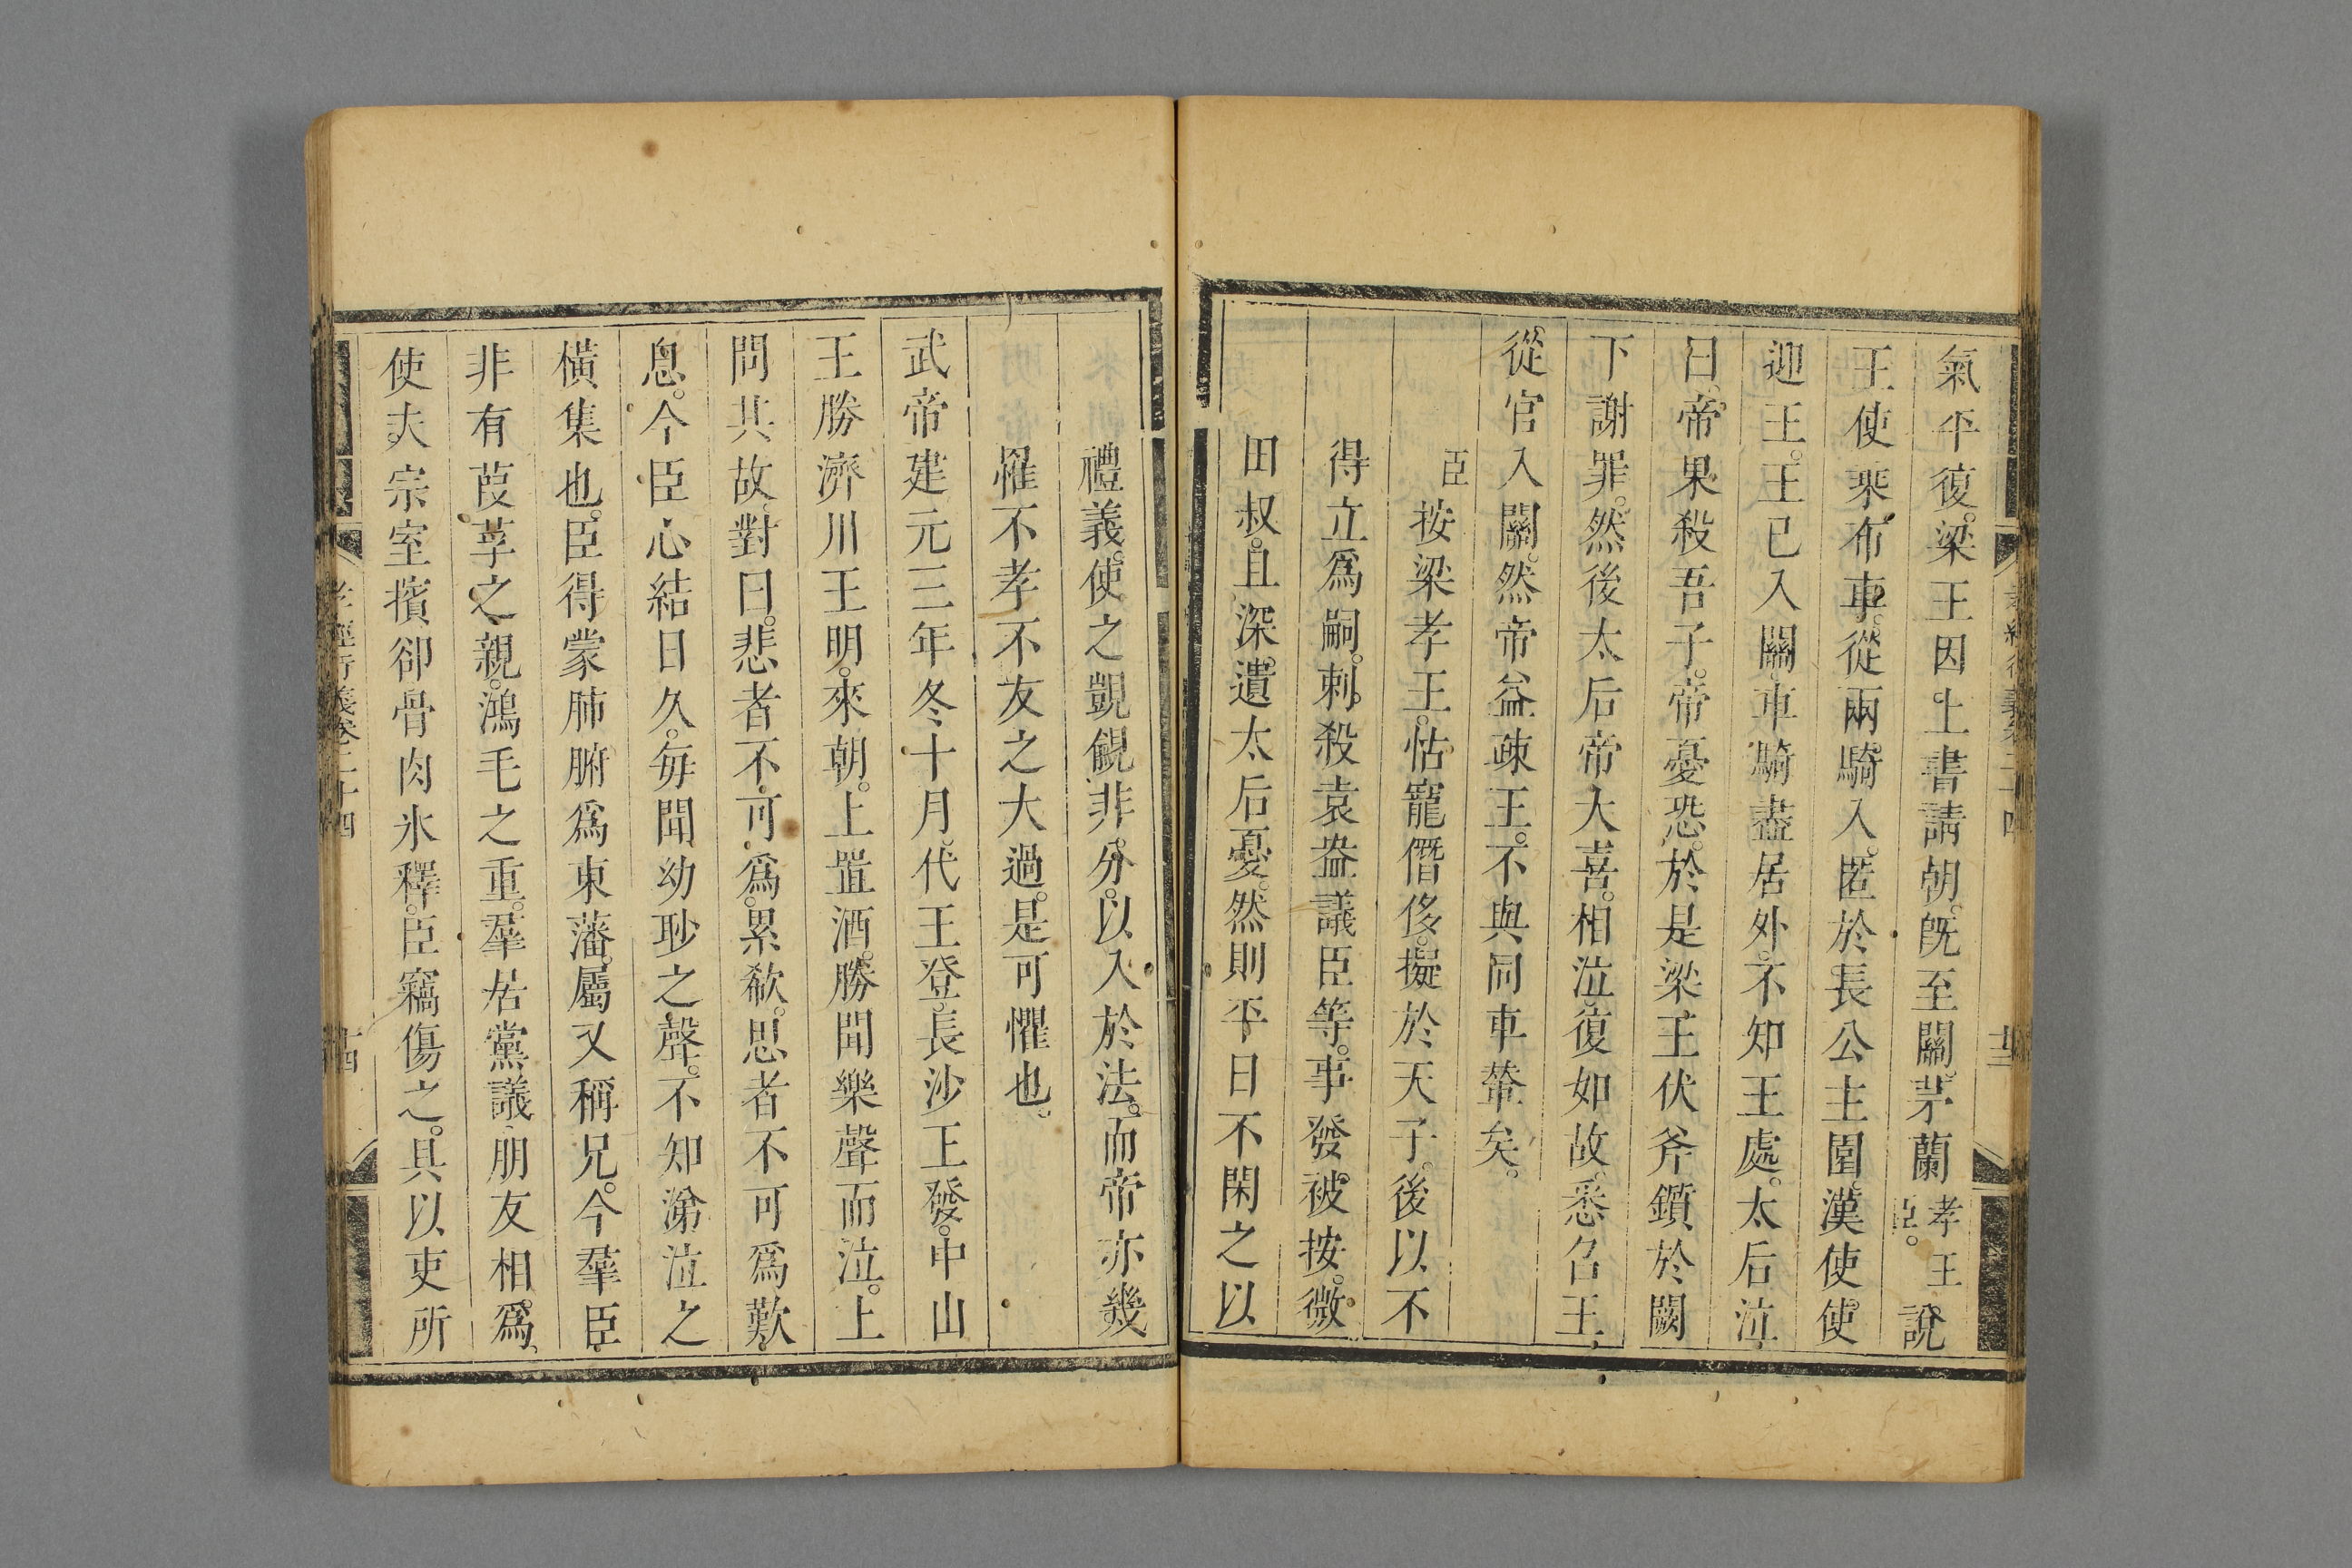 氣平復。梁王因上書請朝。旣至關。茅蘭孝王臣。說
王使乘布車。從兩騎入。匿於長公主園。漢使使
迎王。王已入關。車騎盡居外。不知王處。太后泣
曰。帝果殺吾子。帝憂恐。於是梁王伏斧鑕於闕
下謝罪。然後太后帝大喜。相泣復如故。悉召王
從官入關。然帝益疎王。不與同車輦矣。
臣按梁孝王。怙寵僭侈。擬於天子。後以不
得立爲嗣。刺殺袁盎議臣等。事發。被按。微
田叔。且深遺太后憂。然則平日不閑之以
禮義。使之覬覦非分。以入於法。而帝亦幾
罹不孝不友之大過。是可懼也。
武帝建元三年冬十月。代王登。長沙王發。中山
王勝濟川王明。來朝。上置酒。勝聞樂聲而泣。上
問其故。對曰。悲者不可爲累欷。思者不可爲歎
息。今臣心結日久。每聞幼眇之聲。不知涕泣之
橫集也。臣得蒙肺腑爲東藩。屬又稱兄。今羣臣
非有葭莩之親。鴻毛之重。羣居黨議。朋友相爲。
使夫宗室擯卻骨肉氷釋。臣竊傷之。具以吏所
孝經衍義卷二十四
十四